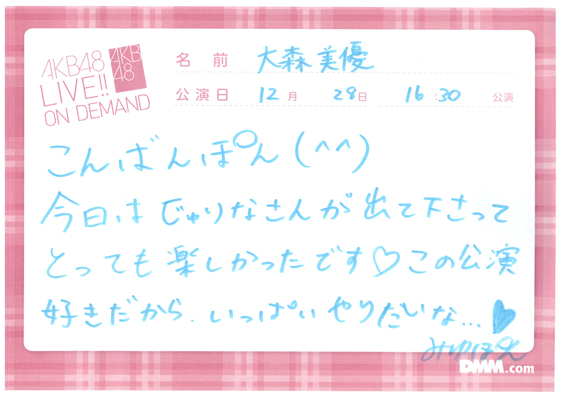 AKB48
LIVE!!
ON DEMAND
AKB
48
名前 大森美優
公演日 12月 28日 16:30 公演
こんばんぽん(^^)
今日はじゅりなさんが出て下さって
とっても楽しかったです♡この公演
好きだから、いっぱいやりたいな...♥
みゆぽん
DMM.com